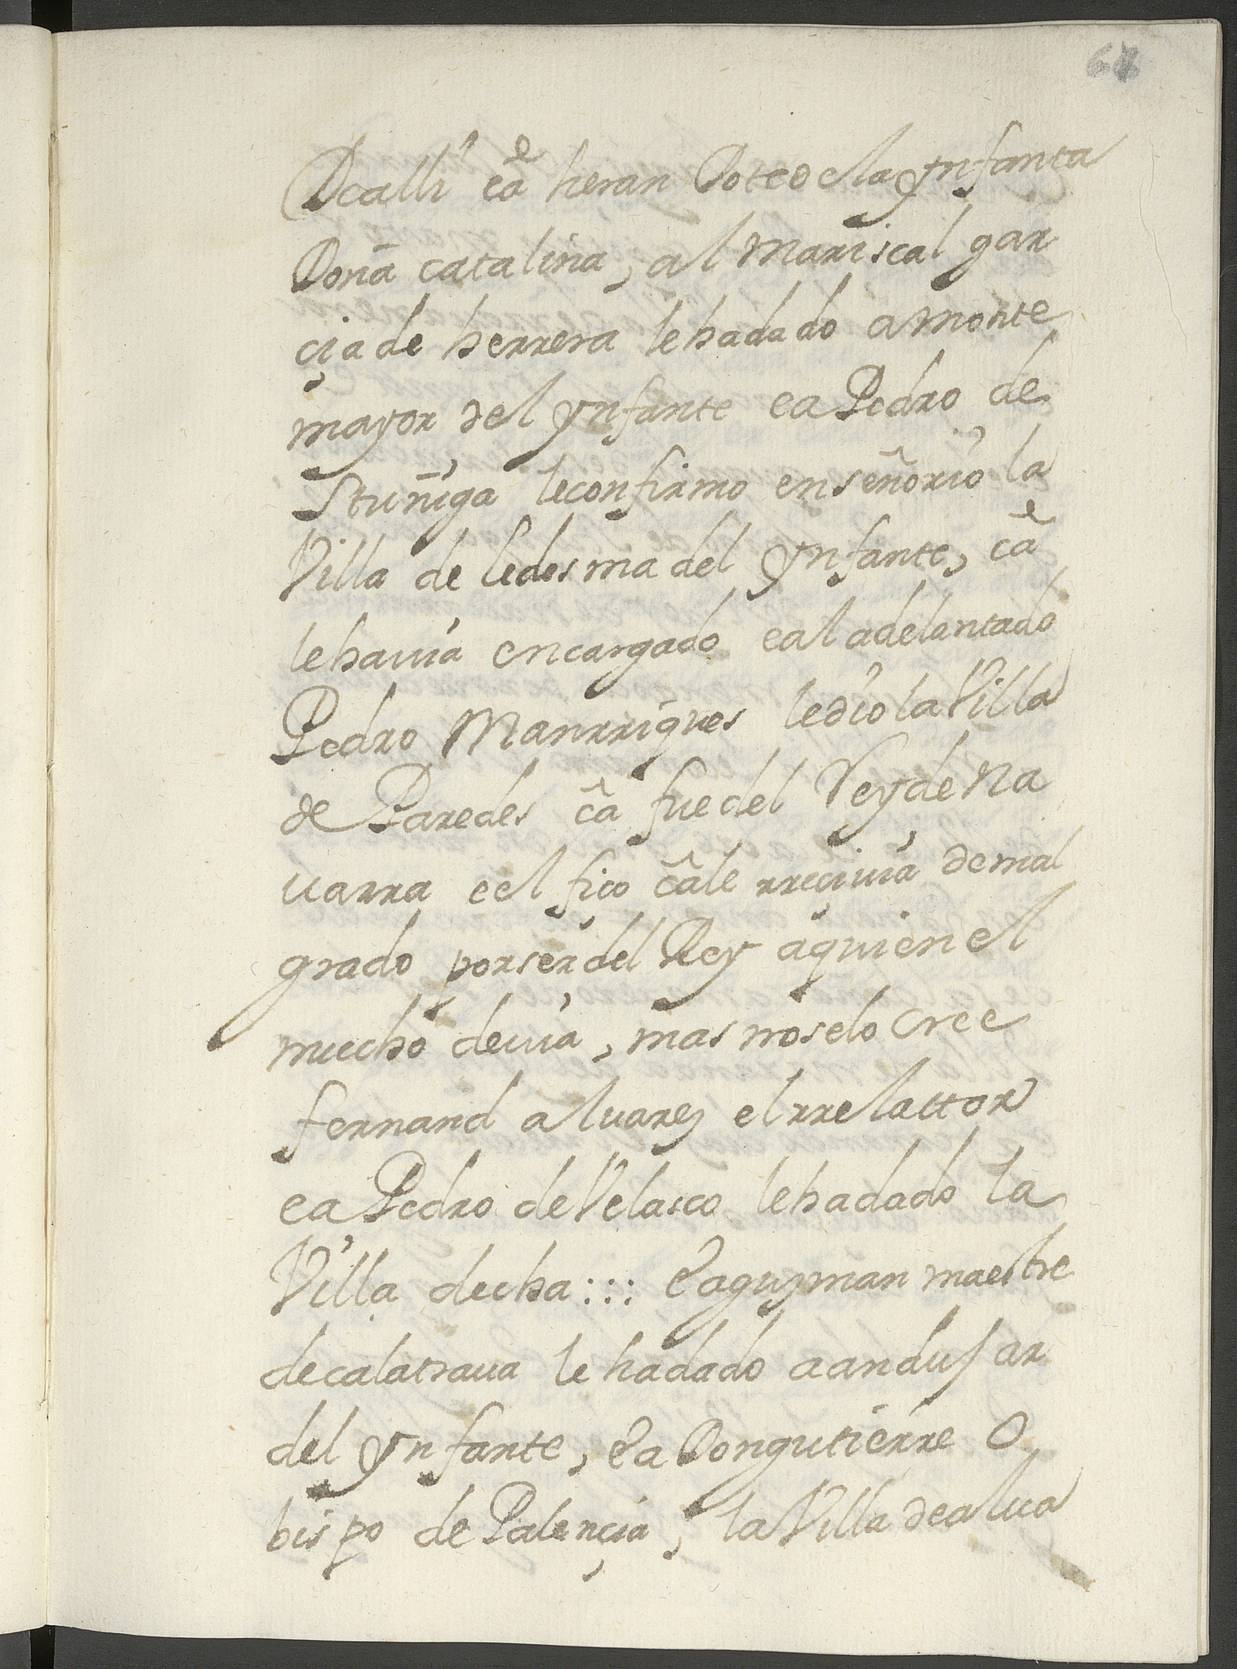 67
Dealli câ heran Dote de la ynfanta
Doña catalina, al Mariscal gar
çia de herrera le ha dado a monte
mayor del ynfante e a Pedro de
Stuñiga le confirmo en señorio la
Villa de ledesma del ynfante, câ
le hauia encargado e al adelantado
Pedro Manrriques le dio la Villa
de Paredes câ fue del Rey de Na
uarra e el fico câ le rreçiuia de mal
grado por ser del Rey a quien el
mucho deuia, mas no se lo Cree
fernand aluarez el rrelattor
e a Pedro de Velasco le ha dado la
Villa de cha::: e a guzman maestre
de calatraua le ha dado a andujar
del ynfante, e a Don gutierre O
bispo de Palençia, la Villa de alua